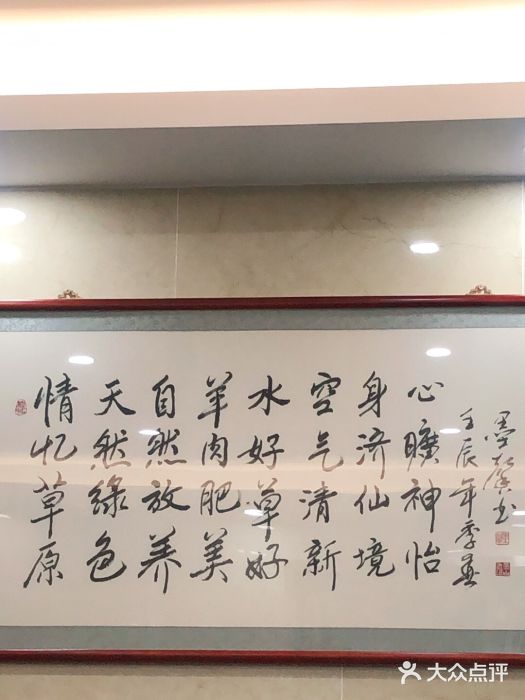 情忆草原
天然綠色
自然放养
羊肉肥美
水好草好
空气清新
身济仙境
心曠神怡
壬辰年季
墨 书
大众点评